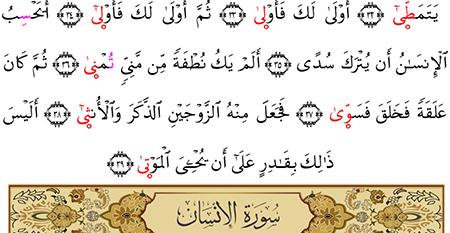 يَتَمَطَّىٰٓ ﴿٣٣﴾ أَوْلَىٰ لَكَ فَأَوْلَىٰ ﴿٣٤﴾ ثُمَّ أَوْلَىٰ لَكَ فَأَوْلَىٰٓ ﴿٣٥﴾ أَيَحْسِبُ
الْإِنسَـٰنُ أَن يُتْرَكَ سُدًى ﴿٣٥﴾ أَلَمْ يَكُ نُطْفَةً مِّن مَّنِىٍّ تُمْنَىٰ ﴿٣٦﴾ ثُمَّ كَانَ
عَلَقَةً فَخَلَقَ فَسَوَّىٰ ﴿٣٧﴾ فَجَعَلَ مِنْهُ الزَّوْجَيْنِ الذَّكَرَ وَالْأُنثَىٰٓ ﴿٣٨﴾ أَلَيْسَ
ذَٰلِكَ بِقَـٰدِرٍ عَلَىٰٓ أَن يُحْـِۧىَ الْمَوْتَىٰ ﴿٣٩﴾
سُورَةُ الْإِنسَانِ